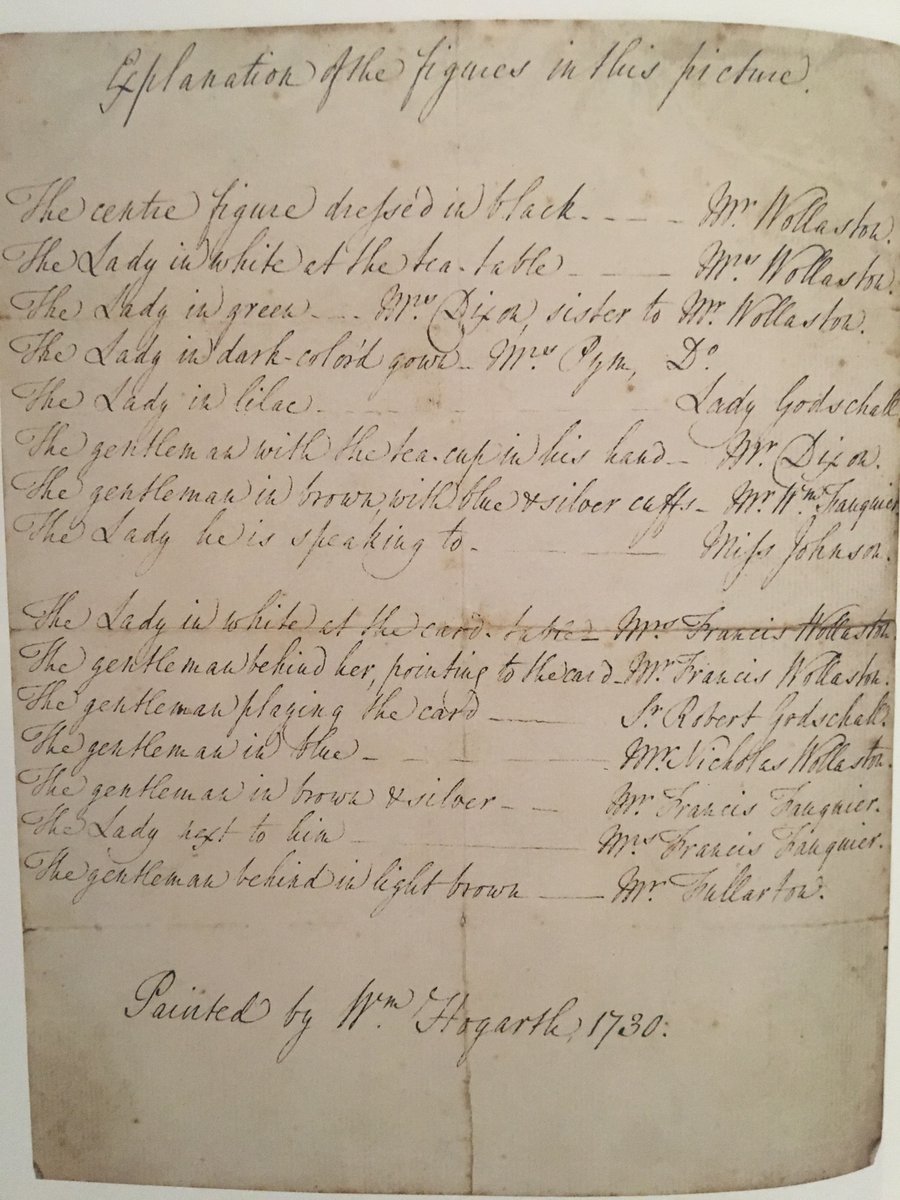 Explanation of the figures in this picture.
The centre figure dress'd in black - - - - Mr. Wollaston.
The Lady in white at the tea-table - - - Mrs. Wollaston.
The Lady in green - - - Mrs. Dixon, sister to Mr. Wollaston.
The Lady in dark-color'd gown - Mrs. Pym, Do.
The Lady in lilac - - - - - - - Lady Godschall
The gentleman with the tea-cup in his hand - Mr. Dixon.
The gentleman in brown, with blue & silver cuffs - Mr. Wm. Fauquier
The Lady he is speaking to - - - - Miss Johnson.
The Lady in white at the card-table - Mrs Francis Wollaston.
The gentleman behind her, pointing to the card - Mr. Francis Wollaston.
The gentleman playing the card - - Sr. Robert Godschall.
The gentleman in blue - - - - - Mr. Nicholas Wollaston.
The gentleman in brown & silver - - - Mr. Francis Fauquier.
The Lady next to him - - - Mrs Francis Fauquier.
The gentleman behind in light brown - - Mr. Fullarton.
Painted by Wm. Hogarth, 1730.